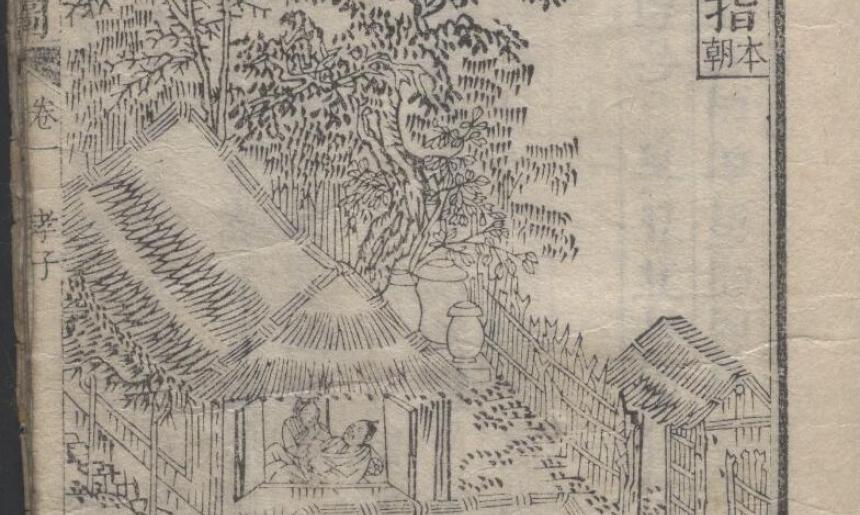 指
本朝
卷一
孝子